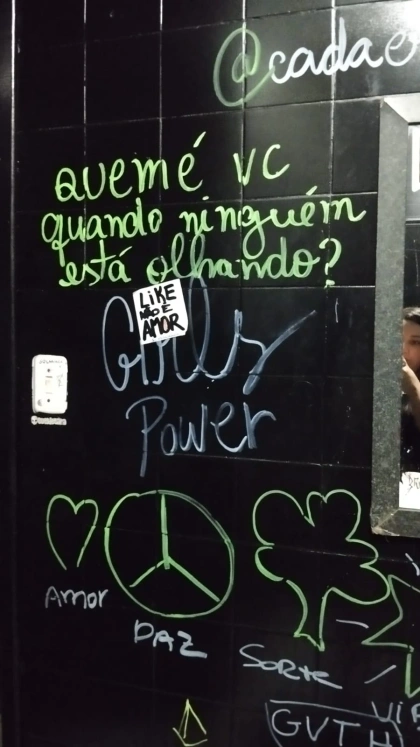 @cada
QUEMÉ VC
quando ninguém
está olhando?
LIKE
NÃO É
AMOR
Girls
Power
Amor
PAZ
Sorte
GVTH